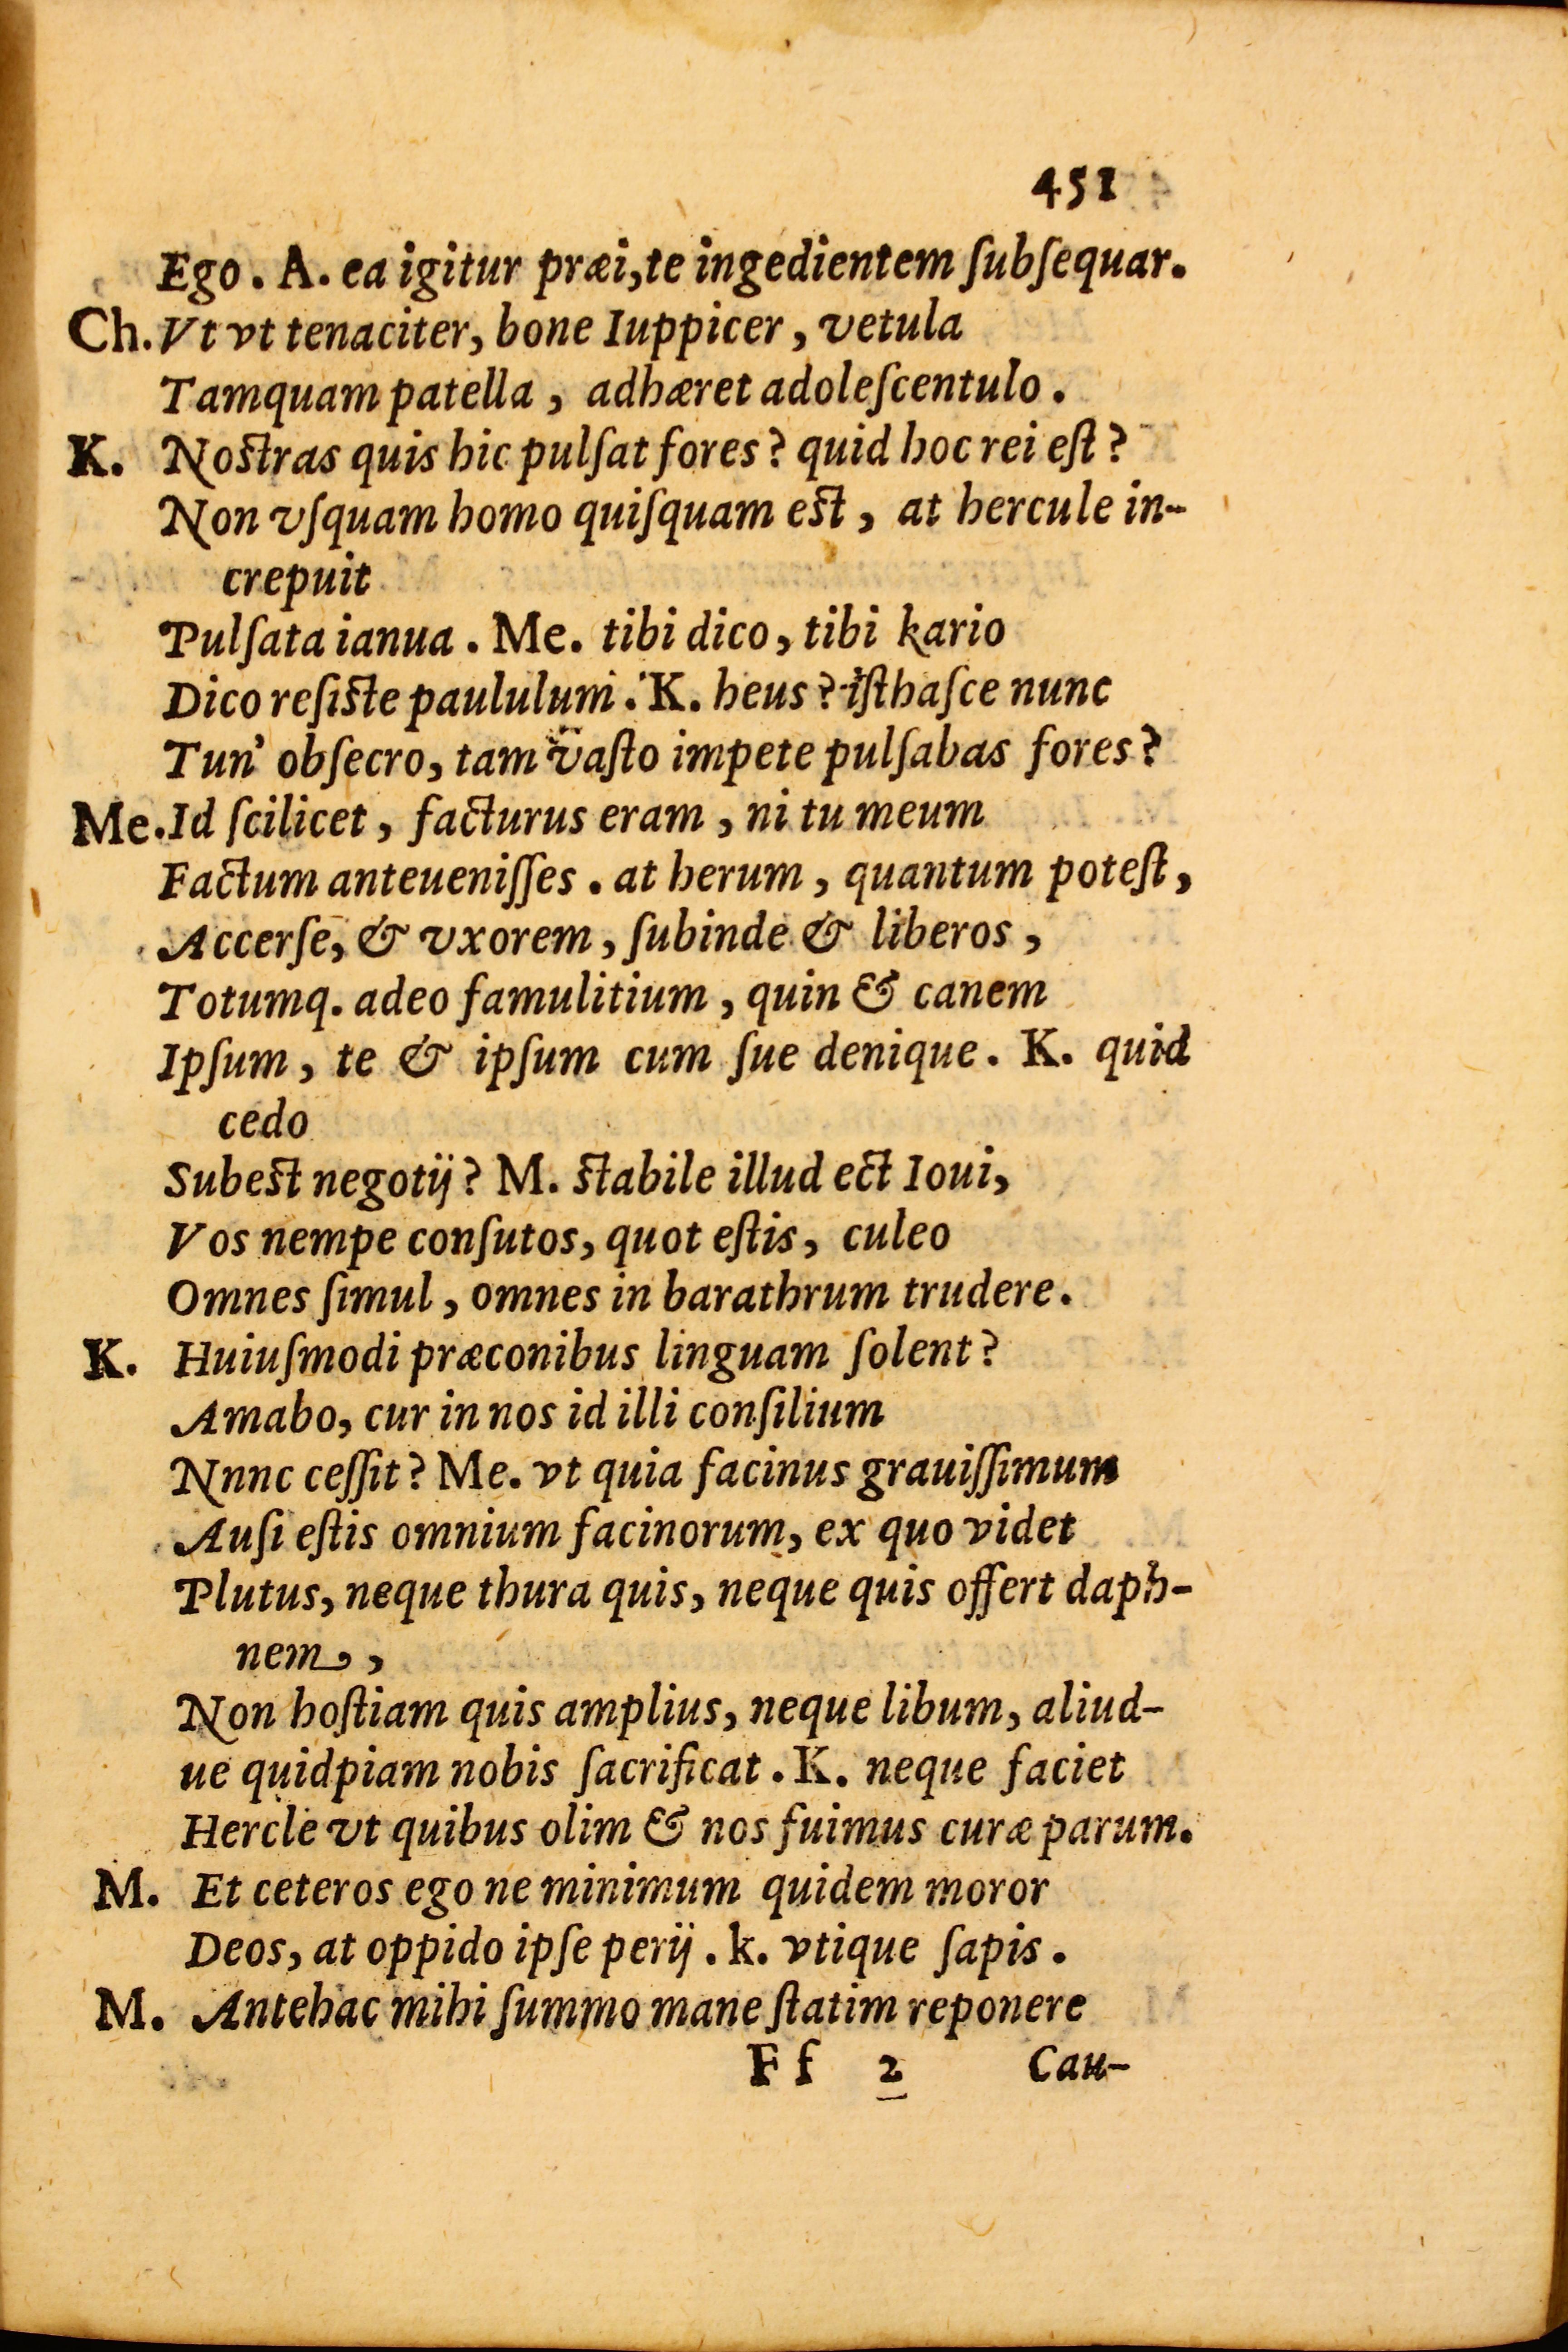 451
Ego. A. ea igitur præi, te ingedientem ſubſequar.
Ch. Vt vt tenaciter, bone Iuppicer, vetula
Tamquam patella, adhæret adoleſcentulo.
K. Noſtras quis hic pulſat fores? quid hoc rei eſt?
Non vſquam homo quiſquam eſt, at hercule in-
crepuit
Pulſata ianua. Me. tibi dico, tibi kario
Dico reſiſte paululum. K. heus? iſthaſce nunc
Tun' obſecro, tam vaſto impete pulſabas fores?
Me. Id ſcilicet, facturus eram, ni tu meum
Factum anteueniſſes. at herum, quantum poteſt,
Accerſe, & vxorem, ſubinde & liberos,
Totumq. adeo famulitium, quin & canem
Ipſum, te & ipſum cum ſue denique. K. quid
cedo
Subeſt negotij? M. ſtabile illud ect Ioui,
Vos nempe conſutos, quot eſtis, culeo
Omnes ſimul, omnes in barathrum trudere.
K. Huiuſmodi præconibus linguam ſolent?
Amabo, cur in nos id illi conſilium
Nnnc ceſſit? Me. vt quia facinus grauiſſimum
Auſi eſtis omnium facinorum, ex quo videt
Plutus, neque thura quis, neque quis offert daph-
nem,
Non hoſtiam quis amplius, neque libum, aliud-
ue quidpiam nobis ſacrificat. K. neque faciet
Hercle vt quibus olim & nos fuimus curæ parum.
M. Et ceteros ego ne minimum quidem moror
Deos, at oppido ipſe perij. k. vtique ſapis.
M. Antehac mihi ſummo mane ſtatim reponere
F f 2 Cau-